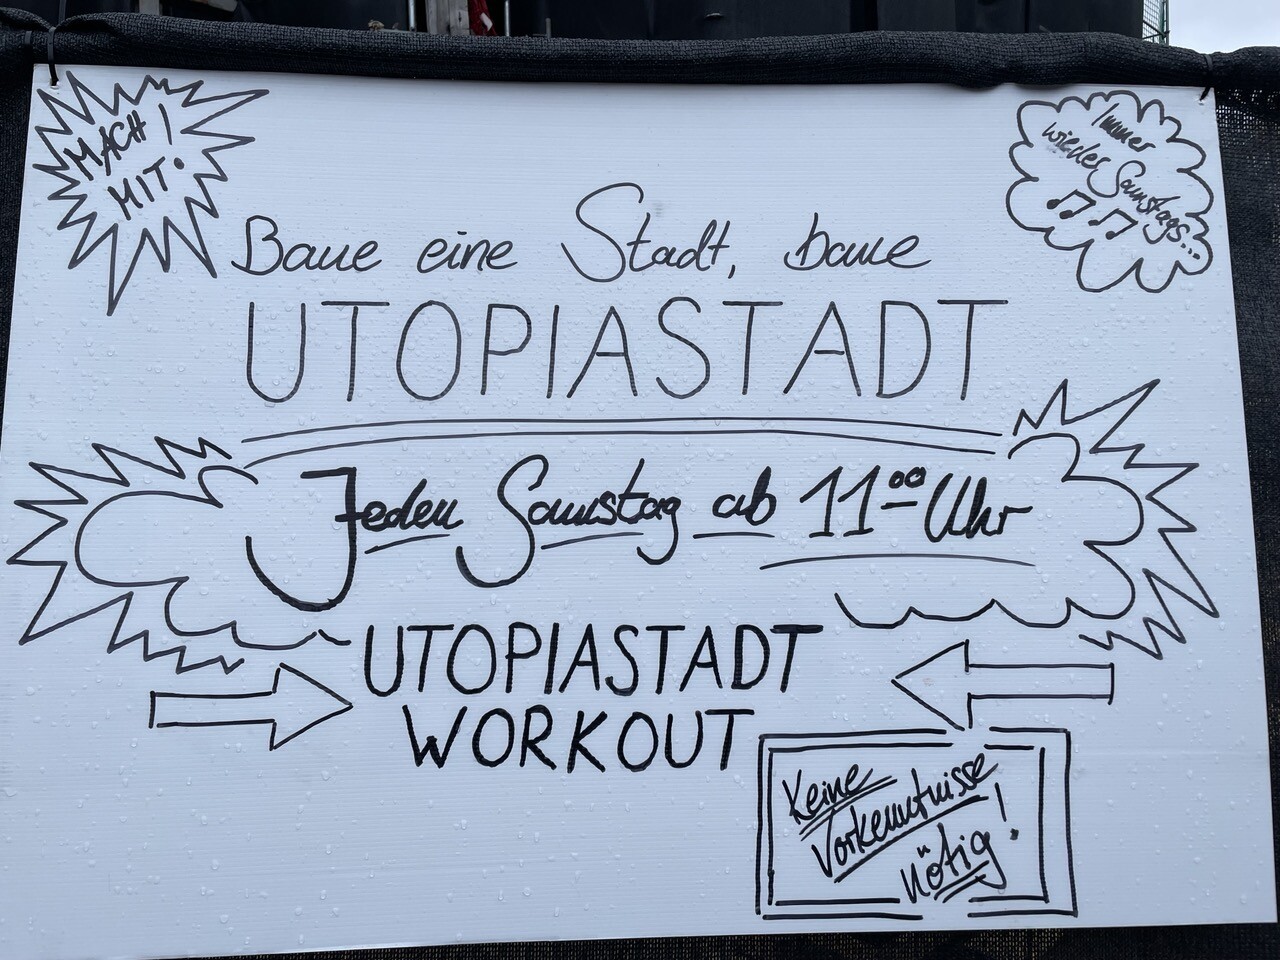 MACH
MIT!
Immer
wieder
Samstags...
Baue eine Stadt, baue
UTOPIASTADT
Jeden Samstag ab 11⁰⁰ Uhr
UTOPIASTADT
WORKOUT
Keine
Vorkenntnisse
nötig!